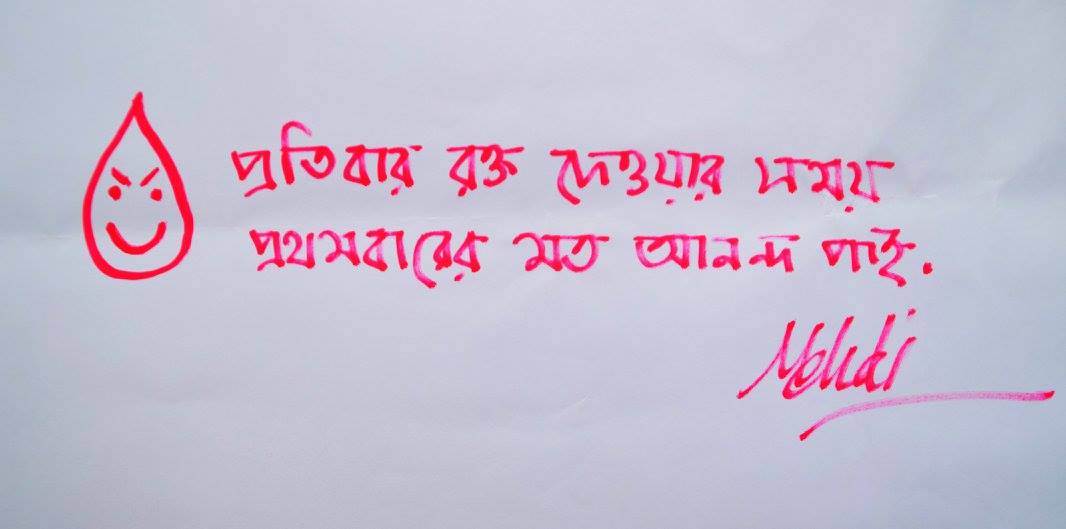 প্রতিবার রক্ত দেওয়ার সময়
প্রথমবারের মত আনন্দ পাই.
Mehedi